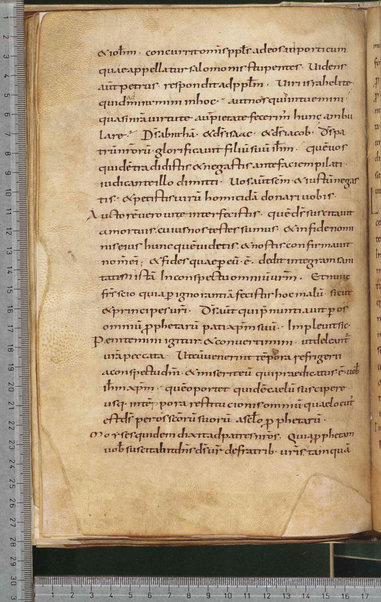 & ioħm · concurrit omnis ppłs ad eos ad porticum
quae appellatur salomonis stupentes · Videns
aut petrus respondit ad ppłm · Viri israhelite
quid miramini in hoc · aut nos quid intuemini
quasi nra virtute aut pietate fecerim hunc ambu
lare · Ds abraham · & ds isaac · & ds iacob · Ds pa
trum nrorū glorificavit filiū suū ihm · quē vos
quidē tradidistis & negastis ante faciem pilati ·
iudicante illo dimitti · Vos aut scm & iustū negas
tis · & petistis virū homicidā donari vobis ·
Auctorē vero vite interfecistis · quē ds suscitavit
a mortuis cuius nos testes sumus · & in fide nomi
nis eius hunc quē videtis · & nostis confirmavit
nom eius · & fides quae p eū ē · dedit integram sani
tatem istā in conspectu omniū vrm · Et nunc
frs scio quia p ignorantiā fecistis hoc malū · sicut
& principes vri · Ds aut qui pnuntiavit p os
omniū pphetarū pati xpm suū · Implevit sic ·
Penitemini igitur & convertimini · ut deleant
vra peccata · Ut cū venerint tēpora refrigerii
a conspectu dni · & miserit eū qui praedicatus ē vob
ihm xpm · quē oportet quidē caelū suscipere
usq · in tēpora restitucionis omniū quae locut
est ds per os scorū suorū a sclo pphetarū ·
Moyses quidem dixit ad patres nros · Quia pphetam
vob suscitabit dns ds vr de fratrib vris tamqua